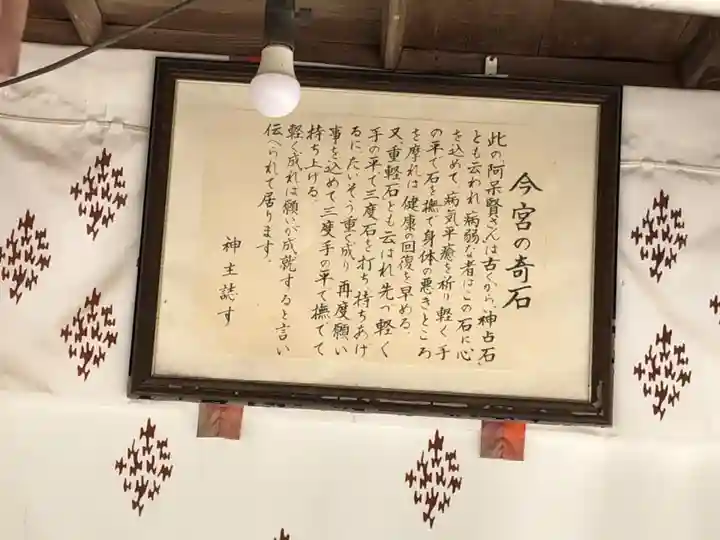 今宮の奇石
此の阿呆賢さんは古くから、神占石、
とも云われ、病弱な者はこの石に心
を込めて、病気平癒を祈り軽く手
の平で石を撫で身体の悪きところ
を摩れば健康の回復を早める。
又、重軽石とも云はれ先づ軽く
手の平で三度石を打ち持ちあげ
るにたいそう重く成り、再度願い
事を込めて三度手の平で撫でて
持ち上げる。
軽く成れば願いが成就すると言い
伝へられて居ります。
神主誌す